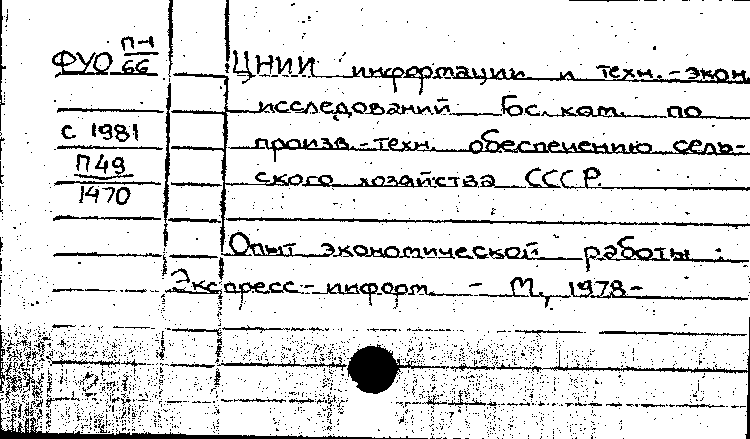 ФУО П-1/66
ЦНИИ информации и техн.-экон.
исследований Гос. ком. по
с 1981
произв.-техн. обеспечению сель-
П49/1470
ского хозяйства СССР.
Опыт экономической работы :
Экспресс-информ. - М., 1978-